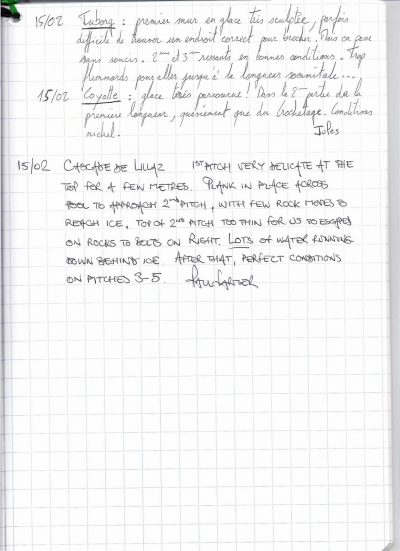 15/02 Tuborg : premier mur en glace très sculptée, parfois
difficile de trouver un endroit correct pour brocher. Mais ça passe
sans soucis. 2ème et 3ème ressauts en bonnes conditions. Trop
flemmards pour aller jusqu'à la longueur sommitale...
15/02 Coyotte : glace très parcourue ! Dans la 2nde partie de la
première longueur, quasiment que du crochetage. Conditions
nickel.
Jules
15/02 CASCADE DE LILLAZ 1ST PITCH VERY DELICATE AT THE
TOP FOR A FEW METRES. PLANK IN PLACE ACROSS
POOL TO APPROACH 2ND PITCH, WITH FEW ROCK MOVES TO
REACH ICE, TOP OF 2ND PITCH TOO THIN FOR US SO ESCAPED
ON ROCKS TO BOLTS ON RIGHT. LOTS OF WATER RUNNING
DOWN BEHIND ICE. AFTER THAT, PERFECT CONDITIONS
ON PITCHES 3-5.